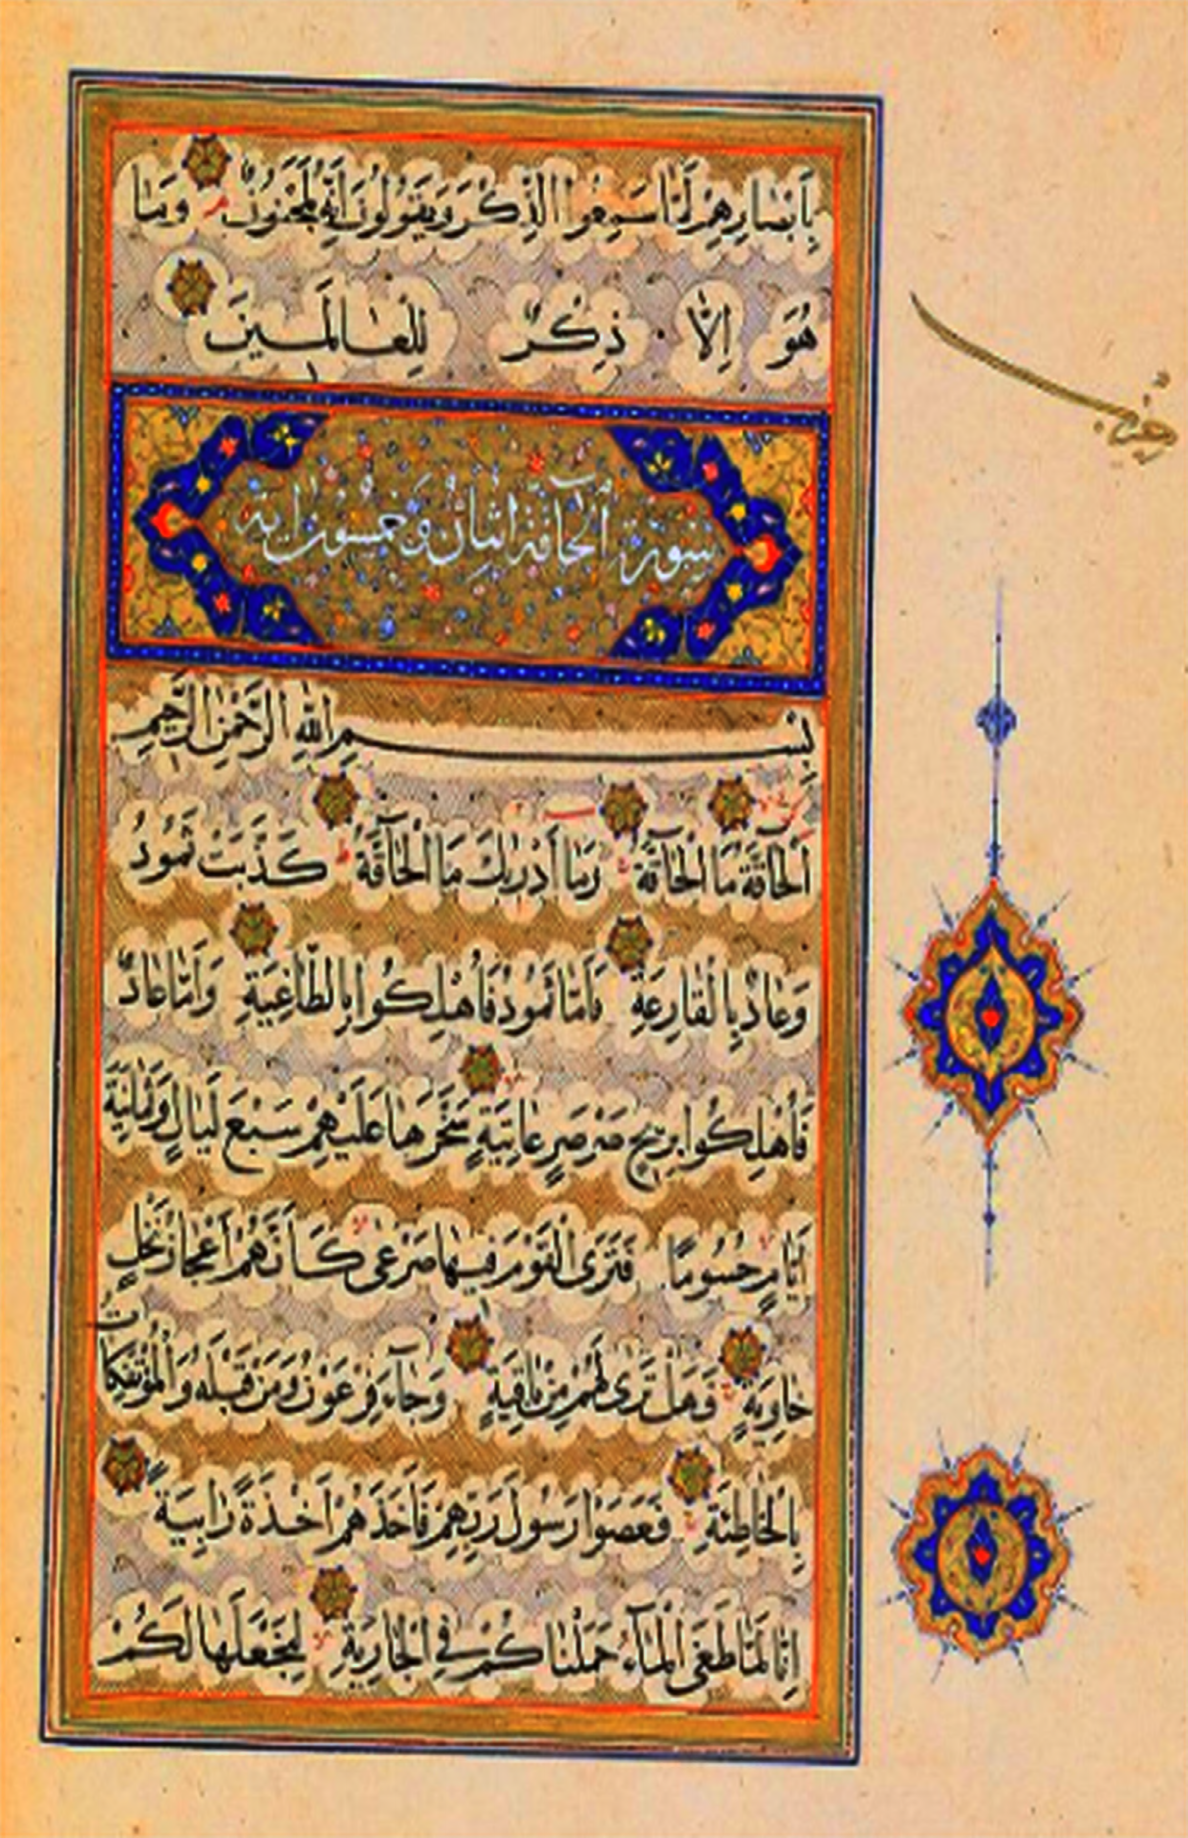 بِاَبْصَارِهِمْ لَمَّا سَمِعُوا الذِّكْرَ وَيَقُولُونَ اِنَّهُ لَمَجْنُونٌ وَمَا
هُوَ اِلَّا ذِكْرٌ لِلْعَالَمِينَ
سورة الحاقة اثنان وخمسون اية
بِسْمِ اللهِ الرَّحْمٰنِ الرَّحِيمِ
اَلْحَاقَّةُ مَا الْحَاقَّةُ وَمَا اَدْرٰيكَ مَا الْحَاقَّةُ كَذَّبَتْ ثَمُودُ
وَعَادٌ بِالْقَارِعَةِ فَاَمَّا ثَمُودُ فَاُهْلِكُوا بِالطَّاغِيَةِ وَاَمَّا عَادٌ
فَاُهْلِكُوا بِرِيحٍ صَرْصَرٍ عَاتِيَةٍ سَخَّرَهَا عَلَيْهِمْ سَبْعَ لَيَالٍ وَثَمَانِيَةَ
اَيَّامٍ حُسُومًا فَتَرَى الْقَوْمَ فِيهَا صَرْعٰى كَاَنَّهُمْ اَعْجَازُ نَخْلٍ
خَاوِيَةٍ فَهَلْ تَرٰى لَهُمْ مِنْ بَاقِيَةٍ وَجَاءَ فِرْعَوْنُ وَمَنْ قَبْلَهُ وَالْمُؤْتَفِكَاتُ
بِالْخَاطِئَةِ فَعَصَوْا رَسُولَ رَبِّهِمْ فَاَخَذَهُمْ اَخْذَةً رَابِيَةً
اِنَّا لَمَّا طَغَى الْمَاءُ حَمَلْنَاكُمْ فِي الْجَارِيَةِ لِنَجْعَلَهَا لَكُمْ